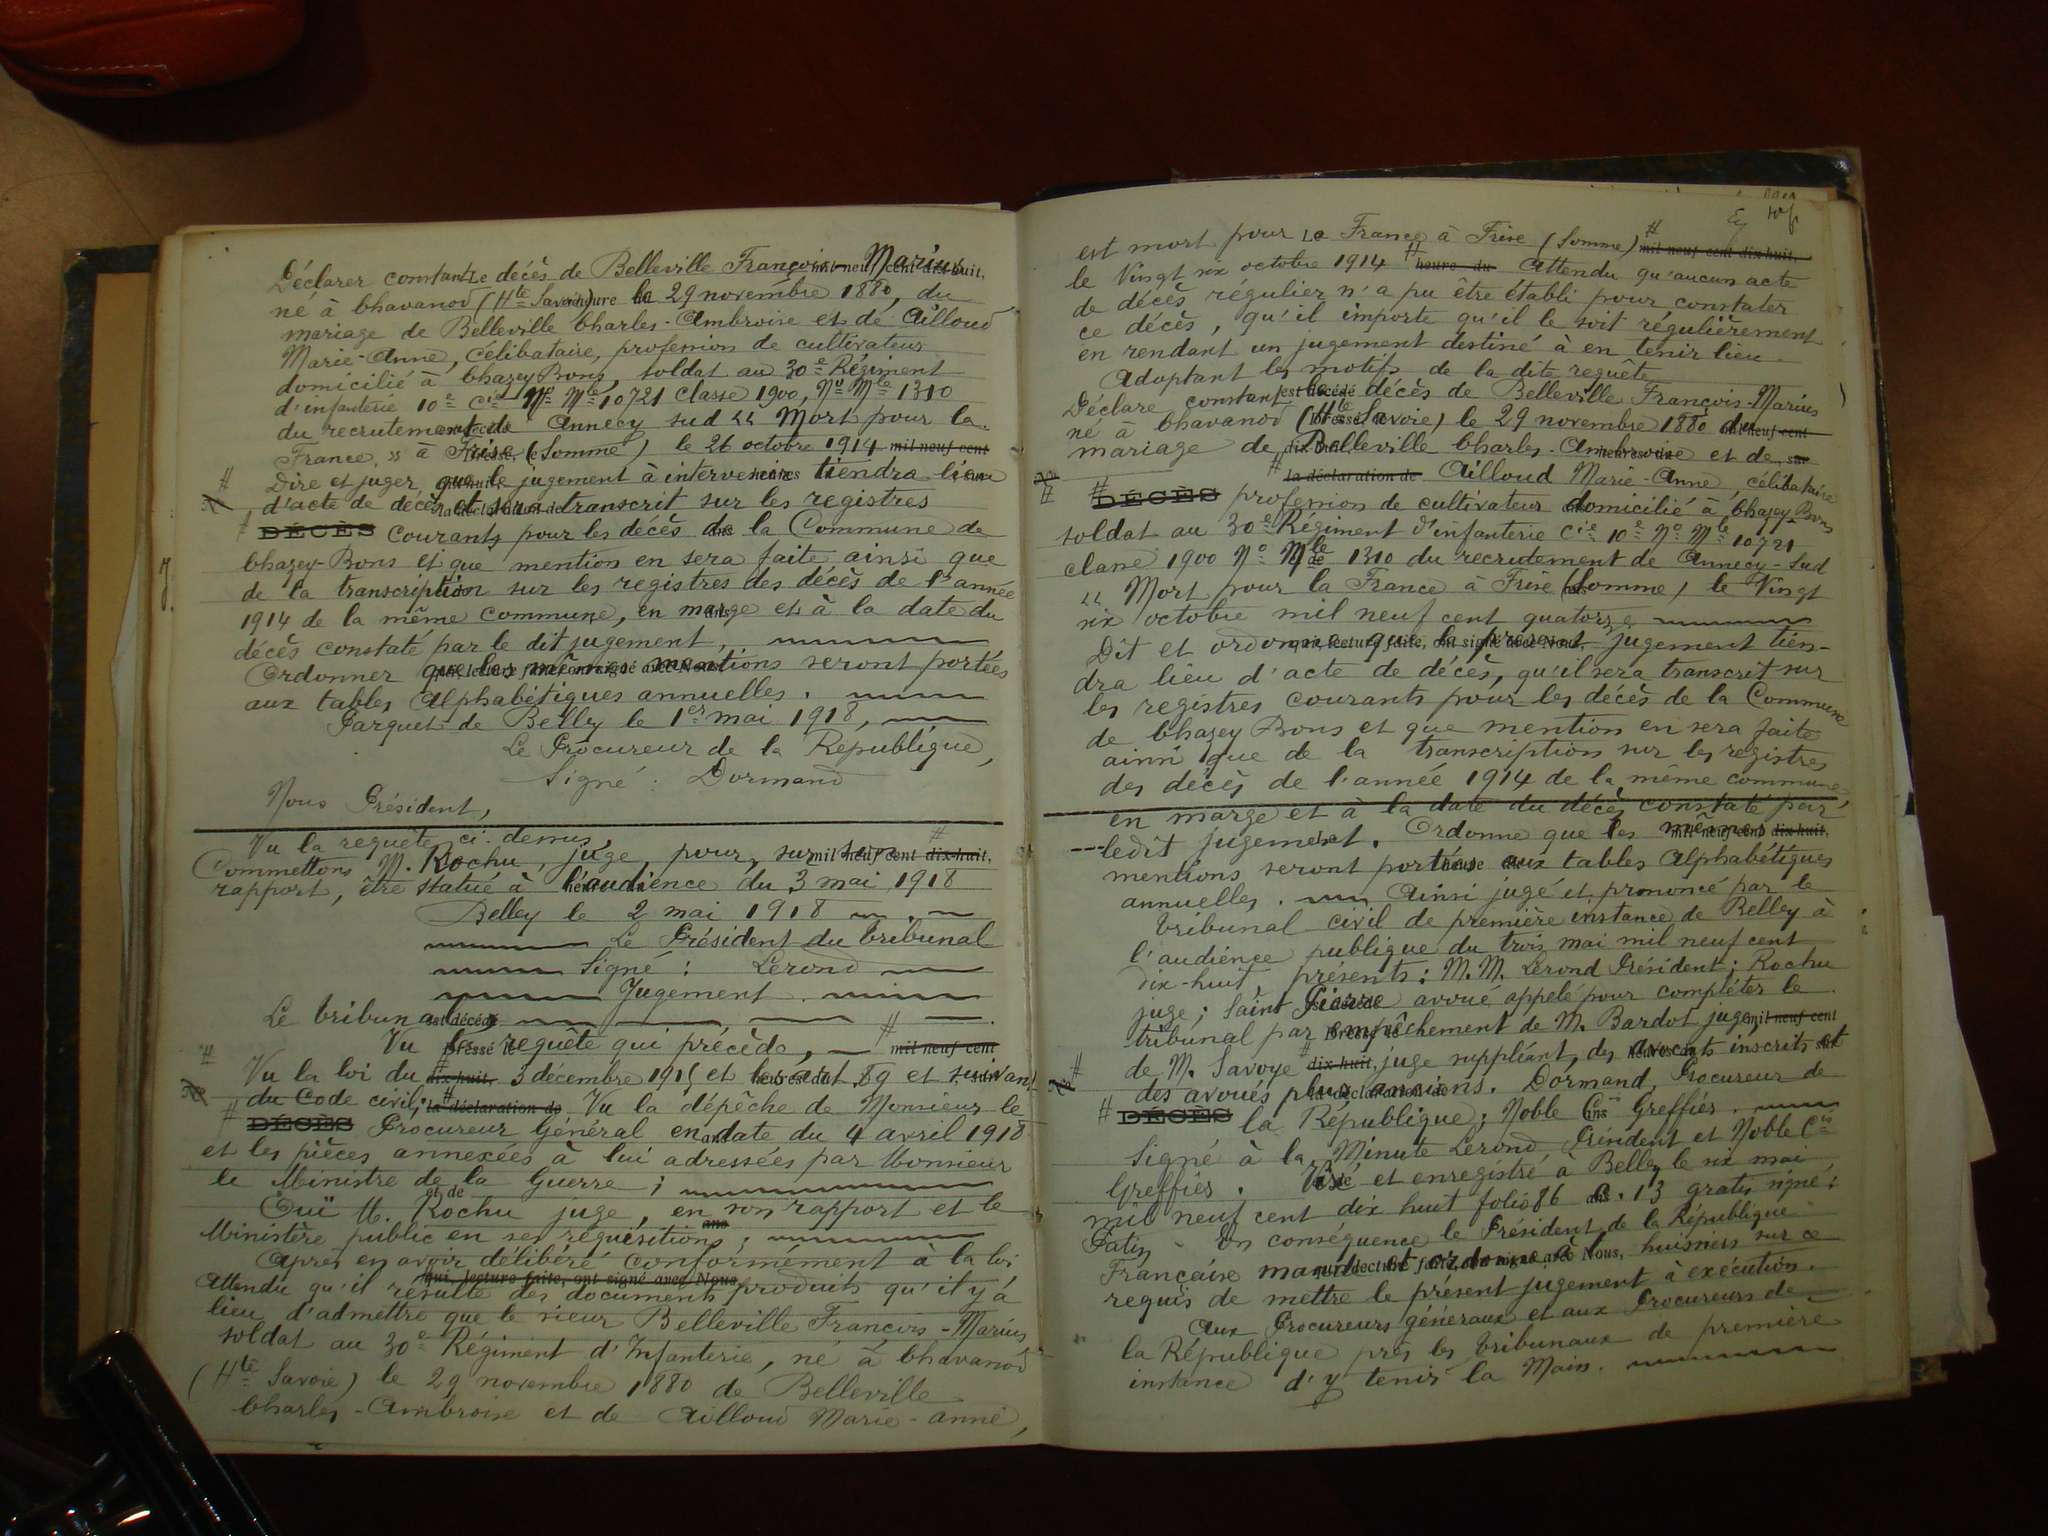 Déclarer constant Le décès de Belleville François-Marius
né à Chavanod (Hte Savoie) le 29 novembre 1880, du
mariage de Belleville Charles-Ambroise et de Ailloud
Marie-Anne, célibataire, profession de cultivateur
domicilié à Chazey Bons, soldat au 30e Régiment
d'infanterie 10e Cie No Mle 10721 Classe 1900, No Mle 1310
du recrutement de Annecy sud "Mort pour la
France" à Frise (Somme) le 26 octobre 1914 mil neuf cent
Dire et juger que le jugement à intervenir tiendra lieu
d'acte de décès et sera transcrit sur les registres
DÉCÈS courants pour les décès de la Commune de
Chazey-Bons et que mention en sera faite ainsi que
de la transcription sur les registres des décès de l'année
1914 de la même commune, en marge et à la date du
décès constaté par le dit jugement,
Ordonner que les mêmes mentions seront portées
aux tables Alphabétiques annuelles.
Parquet de Belley le 1er mai 1918,
Le Procureur de la République,
Signé : Dormand
Nous Président,
Vu la requête ci-dessus
Commettons M. Rochu, juge, pour, sur son mil neuf cent dix-huit,
rapport, être statué à l'audience du 3 mai 1918
Belley le 2 mai 1918
Le Président du tribunal
Signé : Lerond
Jugement
Le tribunal est décédé
Vu la requête qui précède, mil neuf cent
Vu la loi du dix-huit, 3 décembre 1915 et les art. 89 et suivant
du Code civil; la déclaration de Vu la dépêche de Monsieur le
DÉCÈS Procureur Général en date du 4 avril 1918
et les pièces annexées à lui adressées par Monsieur
le Ministre de la Guerre ;
et de
Ouï M. Rochu juge, en son rapport et le
Ministère public en ses réquisitions ;
Après en avoir délibéré conformément à la loi
qui, lecture faite, ont signé avec Nous,
Attendu qu'il résulte des documents produits qu'il y a
lieu d'admettre que le sieur Belleville François-Marius
soldat au 30e Régiment d'Infanterie, né à Chavanod
(Hte Savoie) le 29 novembre 1880 de Belleville
Charles-Ambroise et de Ailloud Marie-Anne,
est mort pour La France à Frise (Somme) mil neuf cent dix-huit,
le Vingt six octobre 1914 heure du Attendu qu'aucun acte
de décès régulier n'a pu être établi pour constater
ce décès, qu'il importe qu'il le soit régulièrement
en rendant un jugement destiné à en tenir lieu.
Adoptant les motifs de la dite requête
Déclare constant le décès de Belleville François-Marius
né à Chavanod (Hte Savoie) le 29 novembre 1880 du
mariage de Belleville Charles-Ambroise et de
la déclaration de Ailloud Marie-Anne, célibataire
DÉCÈS profession de cultivateur domicilié à Chazey-Bons
soldat au 30e Régiment d'infanterie Cie 10e No Mle 10721
classe 1900 No Mle 1310 du recrutement de Annecy-Sud
" Mort pour la France à Frise (Somme) le Vingt
six octobre mil neuf cent quatorze
Dit et ordonne que le présent jugement tien-
dra lieu d'acte de décès, qu'il sera transcrit sur
les registres courants pour les décès de la Commune
de Chazey Bons et que mention en sera faite
ainsi que de la transcription sur les registres
des décès de l'année 1914 de la même commune,
en marge et à la date du décès constaté par
ledit jugement. Ordonne que les mêmes dix-huit,
mentions seront portées aux tables Alphabétiques
annuelles. Ainsi jugé et prononcé par le
tribunal civil de première instance de Belley à
l'audience publique du trois mai mil neuf cent
dix-huit, présents : M.M. Lerond Président; Rochu
juge; Saint Pierre avoué appelé pour compléter le
tribunal par empêchement de M. Bardot juge, mil neuf cent
de M. Savoye dix-huit, juge suppléant, des avocats inscrits et
des avoués plus anciens. Dormand, Procureur de
DÉCÈS la République; Noble Cis Greffier.
Signé à la Minute Lerond Président et Noble Cis
Greffier. Visé et enregistré à Belley le six mai
mil neuf cent dix huit folio 86 c. 13 gratis signé :
Patin En conséquence le Président de la République
Française mande et ordonne à tous huissiers sur ce
requis de mettre le présent jugement à exécution.
Aux Procureurs généraux et aux Procureurs de
la République près les tribunaux de première
instance d'y tenir la Main.